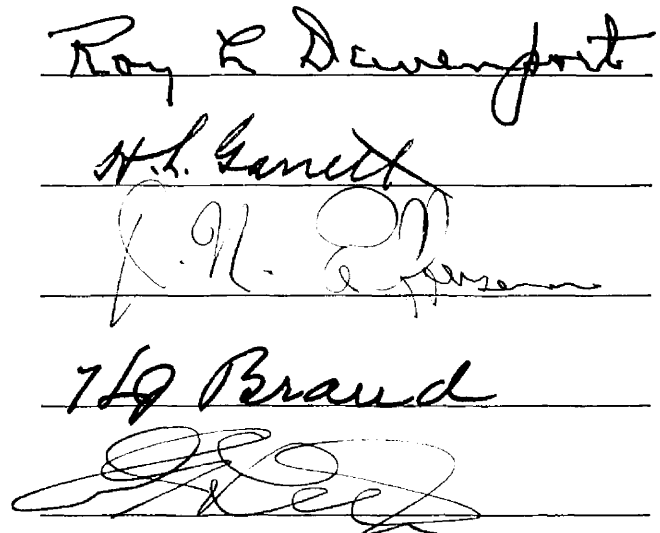 Roy L Davenport
H. L. Garrett
J. N. Efferson
H J Braud